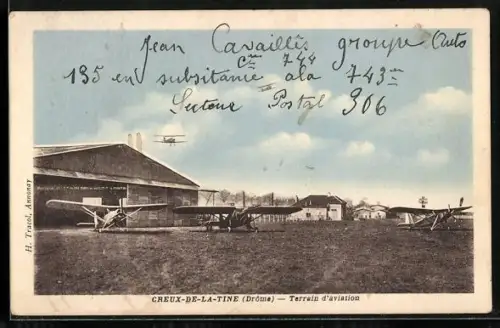 Jean Cavaillès groupe Auto
Cie 744
135 en subsistance a la 743me
Secteur Postal 306
H. Tracol, Annonay
CREUX-DE-LA-TINE (Drôme) — Terrain d'aviation